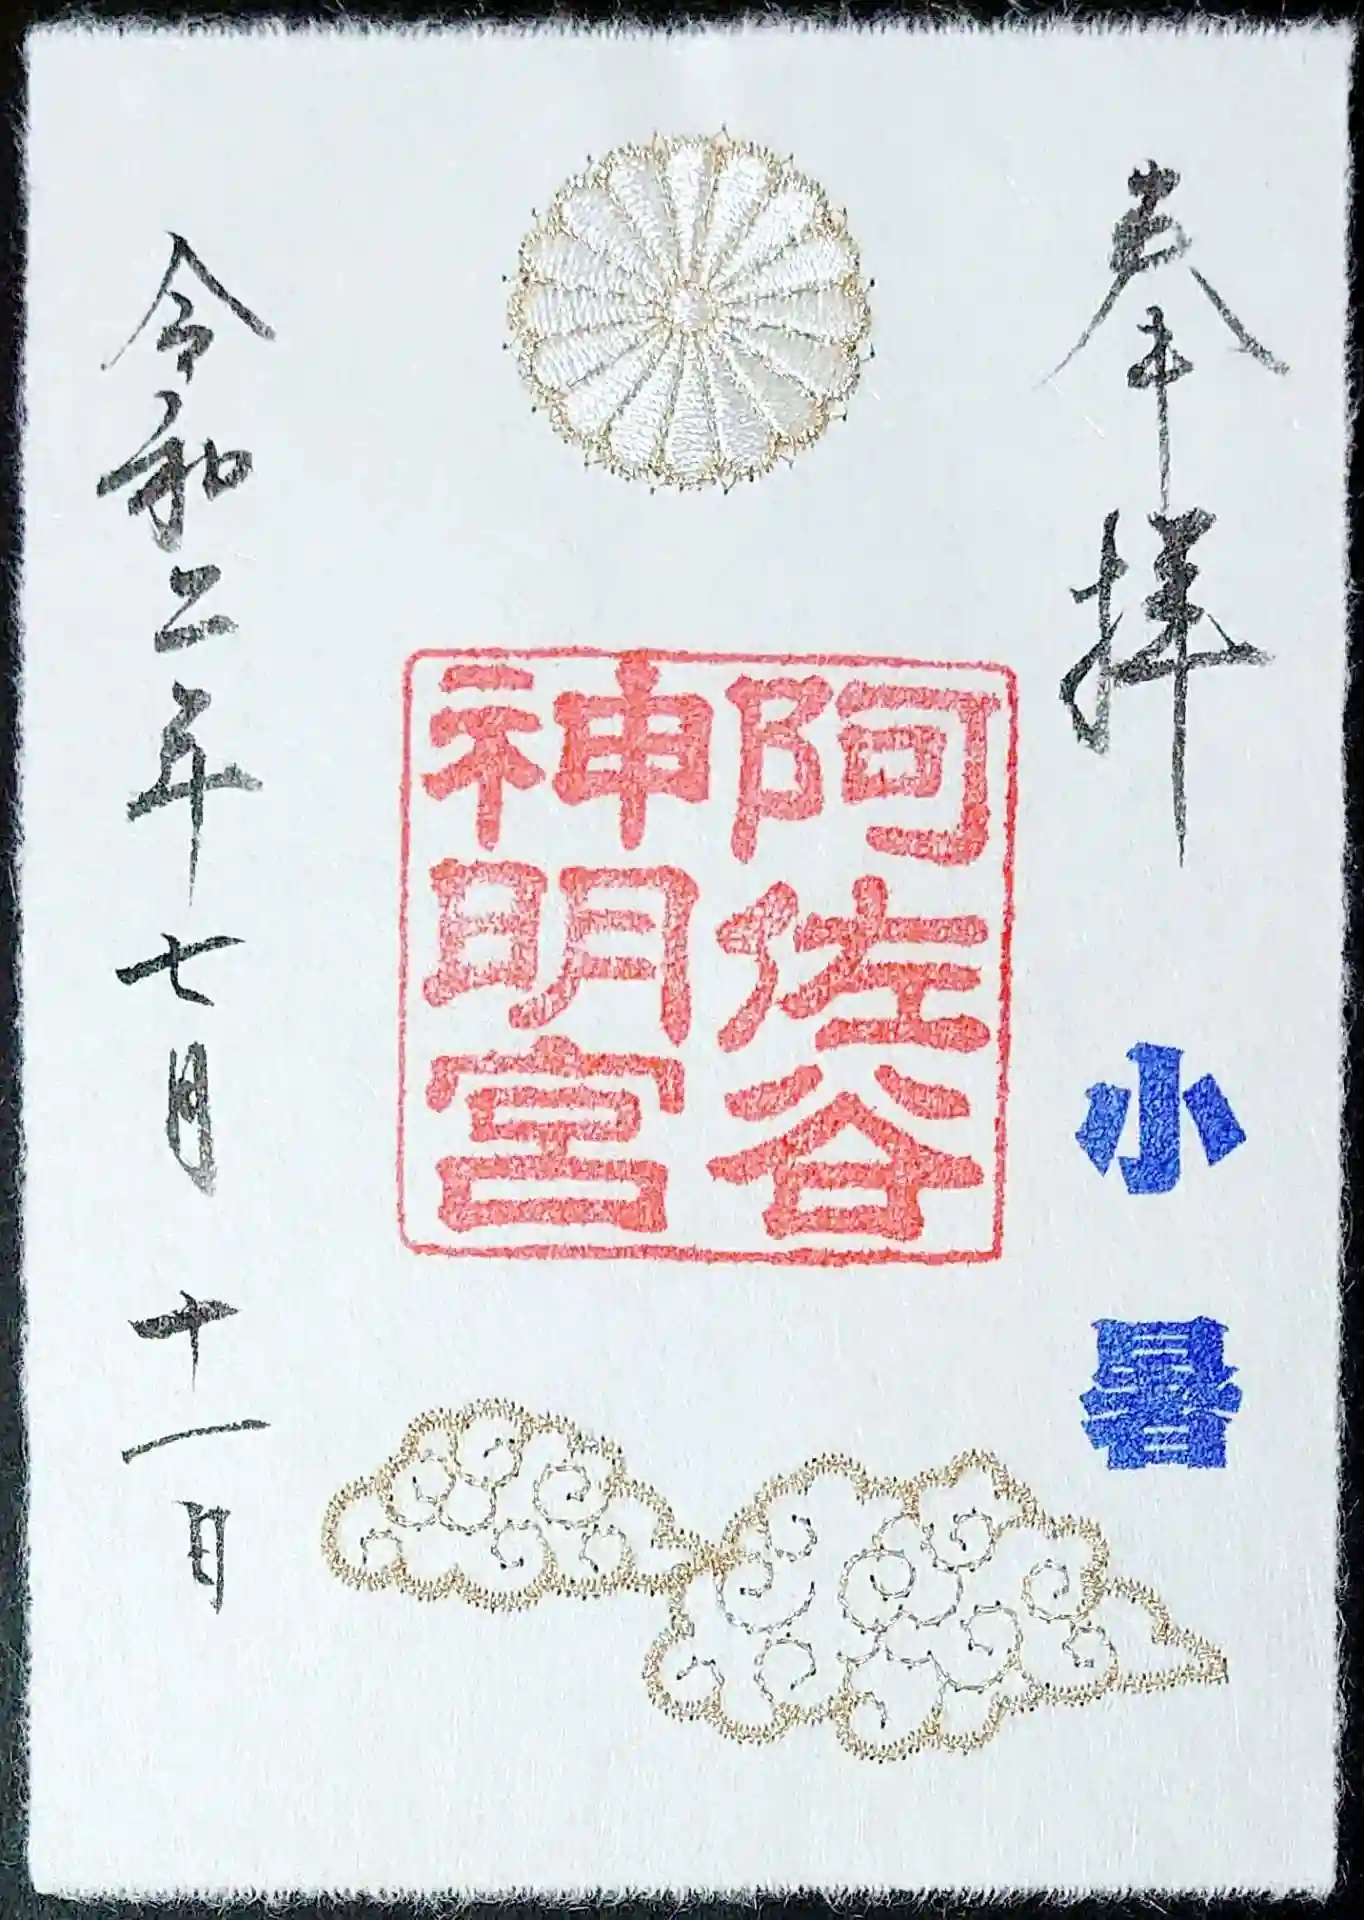 奉拝
小暑
阿佐谷
神明宮
令和二年七月十一日